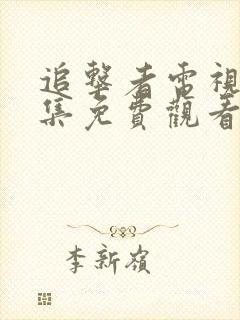 追擊者電視
集免費觀看
李新嶺